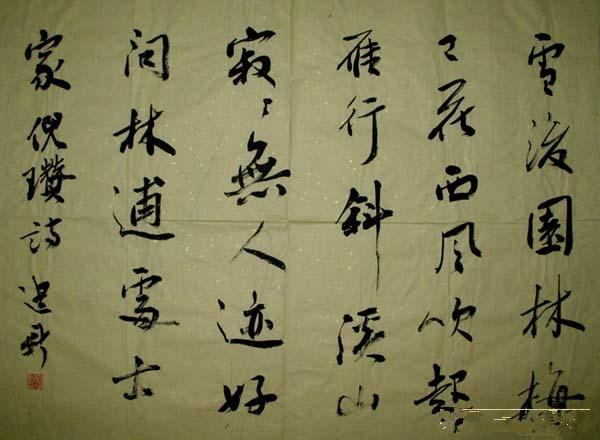 雪後園林梅
已花西风吹起
雁行斜溪山
寂〻無人迹好
問林逋處士
家倪瓚詩